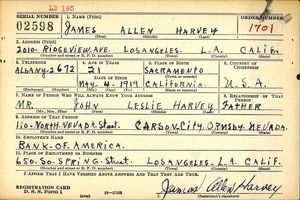 LB 195
SERIAL NUMBER 1. NAME (Print) ORDER NUMBER
02598 JAMES ALLEN HARVEY 1701
(First) (Middle) (Last)
2. ADDRESS (Print)
2010-RIDGEVIEW AVE. LOS ANGELES. L.A. CALIF.
3. TELEPHONE 4. AGE IN YEARS 5. PLACE OF BIRTH 6. COUNTRY OF CITIZENSHIP
ALBANY-2672 21 SACRAMENTO
DATE OF BIRTH
MAY. 4, 1919 CALIFORNIA U.S.
7. NAME OF PERSON WHO WILL ALWAYS KNOW YOUR ADDRESS 8. RELATIONSHIP OF THAT PERSON
MR. JOHN LESLIE HARVEY FATHER
9. ADDRESS OF THAT PERSON
110-NORTH NEVADA Street. CARSON CITY. ORMSBY. NEVADA.
10. EMPLOYER'S NAME
BANK-OF AMERICA.
11. PLACE OF EMPLOYMENT OR BUSINESS
650. SO. SPRING-Street. LOS ANGELES. L.A. CALIF.
I AFFIRM THAT I HAVE VERIFIED ABOVE ANSWERS AND THAT THEY ARE TRUE.
REGISTRATION CARD
D. S. S. Form 1
James Allen Harvey
(Registrant's signature)